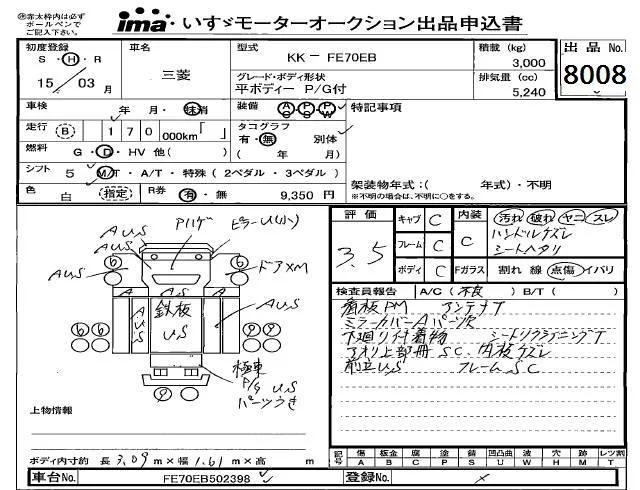 ㊟赤太枠内は必ず
ボールペンで
ご記入下さい。
ima いすゞモーターオークション出品申込書
初度登録 車名 型式 KK－FE70EB 積載 (kg) 3,000 出品 No. 8008
S・H・R
15／03月
三菱
グレード・ボディ形状
平ボディー P/G付
排気量 (cc) 5,240
車検 年 月・抹消 装備 AC PS PW 特記事項
走行 (B) 170 000km「 」 タコグラフ
有・無 別体
燃料 G・D・HV 他( ) ( 年 月)
シフト 5 M/T・A/T・特殊 (2ペダル・3ペダル)
架装物年式：( 年式)・不明
※不明の場合は、不明に○をする。
色 白 (指定) R券 有・無 9,350 円
評価 3.5 キャブ C 内装 C 汚れ 破れ ヤニ スレ
ハンドルスレ
シートヘタリ
フレーム C
ボディ C Fガラス 割れ 線 点傷 イバリ
検査員報告 A/C (不良) B/T ( )
看板PM アンテナT
ミラーカバーAパーツ欠
下廻り付着物 シートリクライニングT
アオリ上部冊SC、内板ズレ
前立US フレームSC
AUS Pハゲ ピラーU(小)
AUS 6 6 ドアXM
A A.S A
AUS 鉄板 US AUS
6 6 6
極東
P/G US
パーツうき
9 9
上物情報
ボディ内寸約 長 3.09 m×幅 1.61 m×高 m
記号 傷 板金 腐 塗 錆 凹凸曲 要 穴 跡 レツ割
A B C P S U W H M T
車台No. FE70EB502398 登録No.